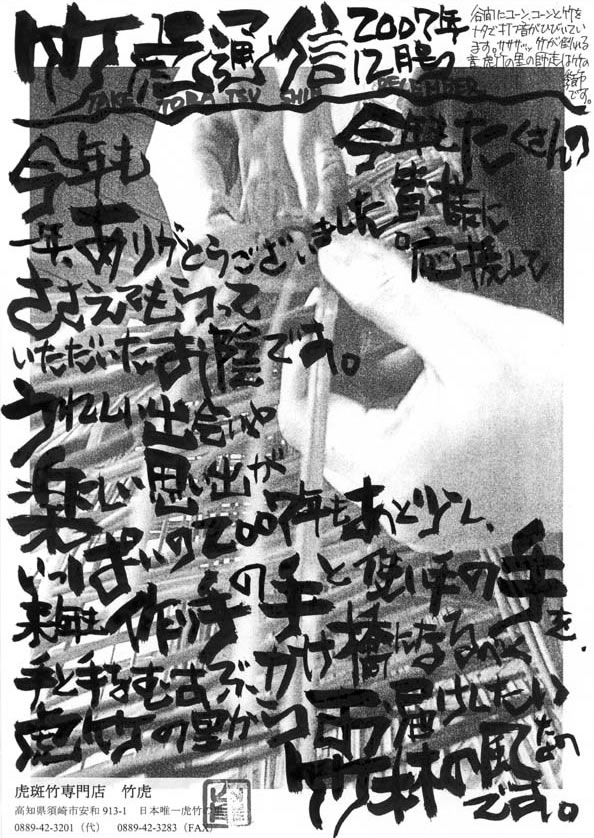 竹虎通信
2007年
12月号
TAKE TORA TSU SHIN DECEMBER
谷間にコーン、コーンと竹を
ナタで打つ音がひびいてい
ます。ササササッ 竹が倒れる
音。虎竹の里の師走は竹の
季節
です。
今年も
一年、ありがとうございました。
今年もたくさんの
皆様に
応援して
ささえてもらって
いただいたお陰です。
うれしい出会いや
楽しい思い出が
いっぱいの2007年もあと少し、
来年も作り手の手と使い手の手を、
手と手をむすぶかけ橋になるべく
虎竹の里からお届けしたい
竹林の風なの
です。
虎斑竹専門店 竹虎
高知県須崎市安和 913-1 日本唯一虎竹の
0889-42-3201（代） 0889-42-3283（FAX）